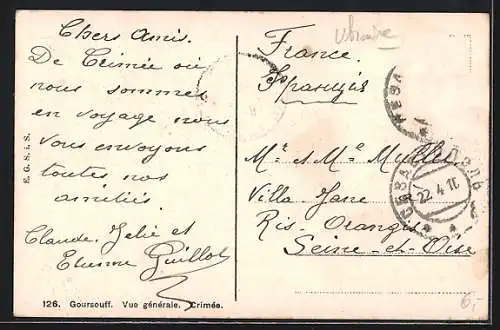 Chers Amis.
De Crimée où
nous sommes
en voyage nous
vous envoyons
toutes nos
amitiés
Claude, et
Etienne Guillot
E. G. S. i. S.
126. Goursouff. Vue générale. Crimée.
France.
Франція
Mr et Me Muller
Villa Jane
Ris-Orangis
Seine-et-Oise
22 4 1
6,-